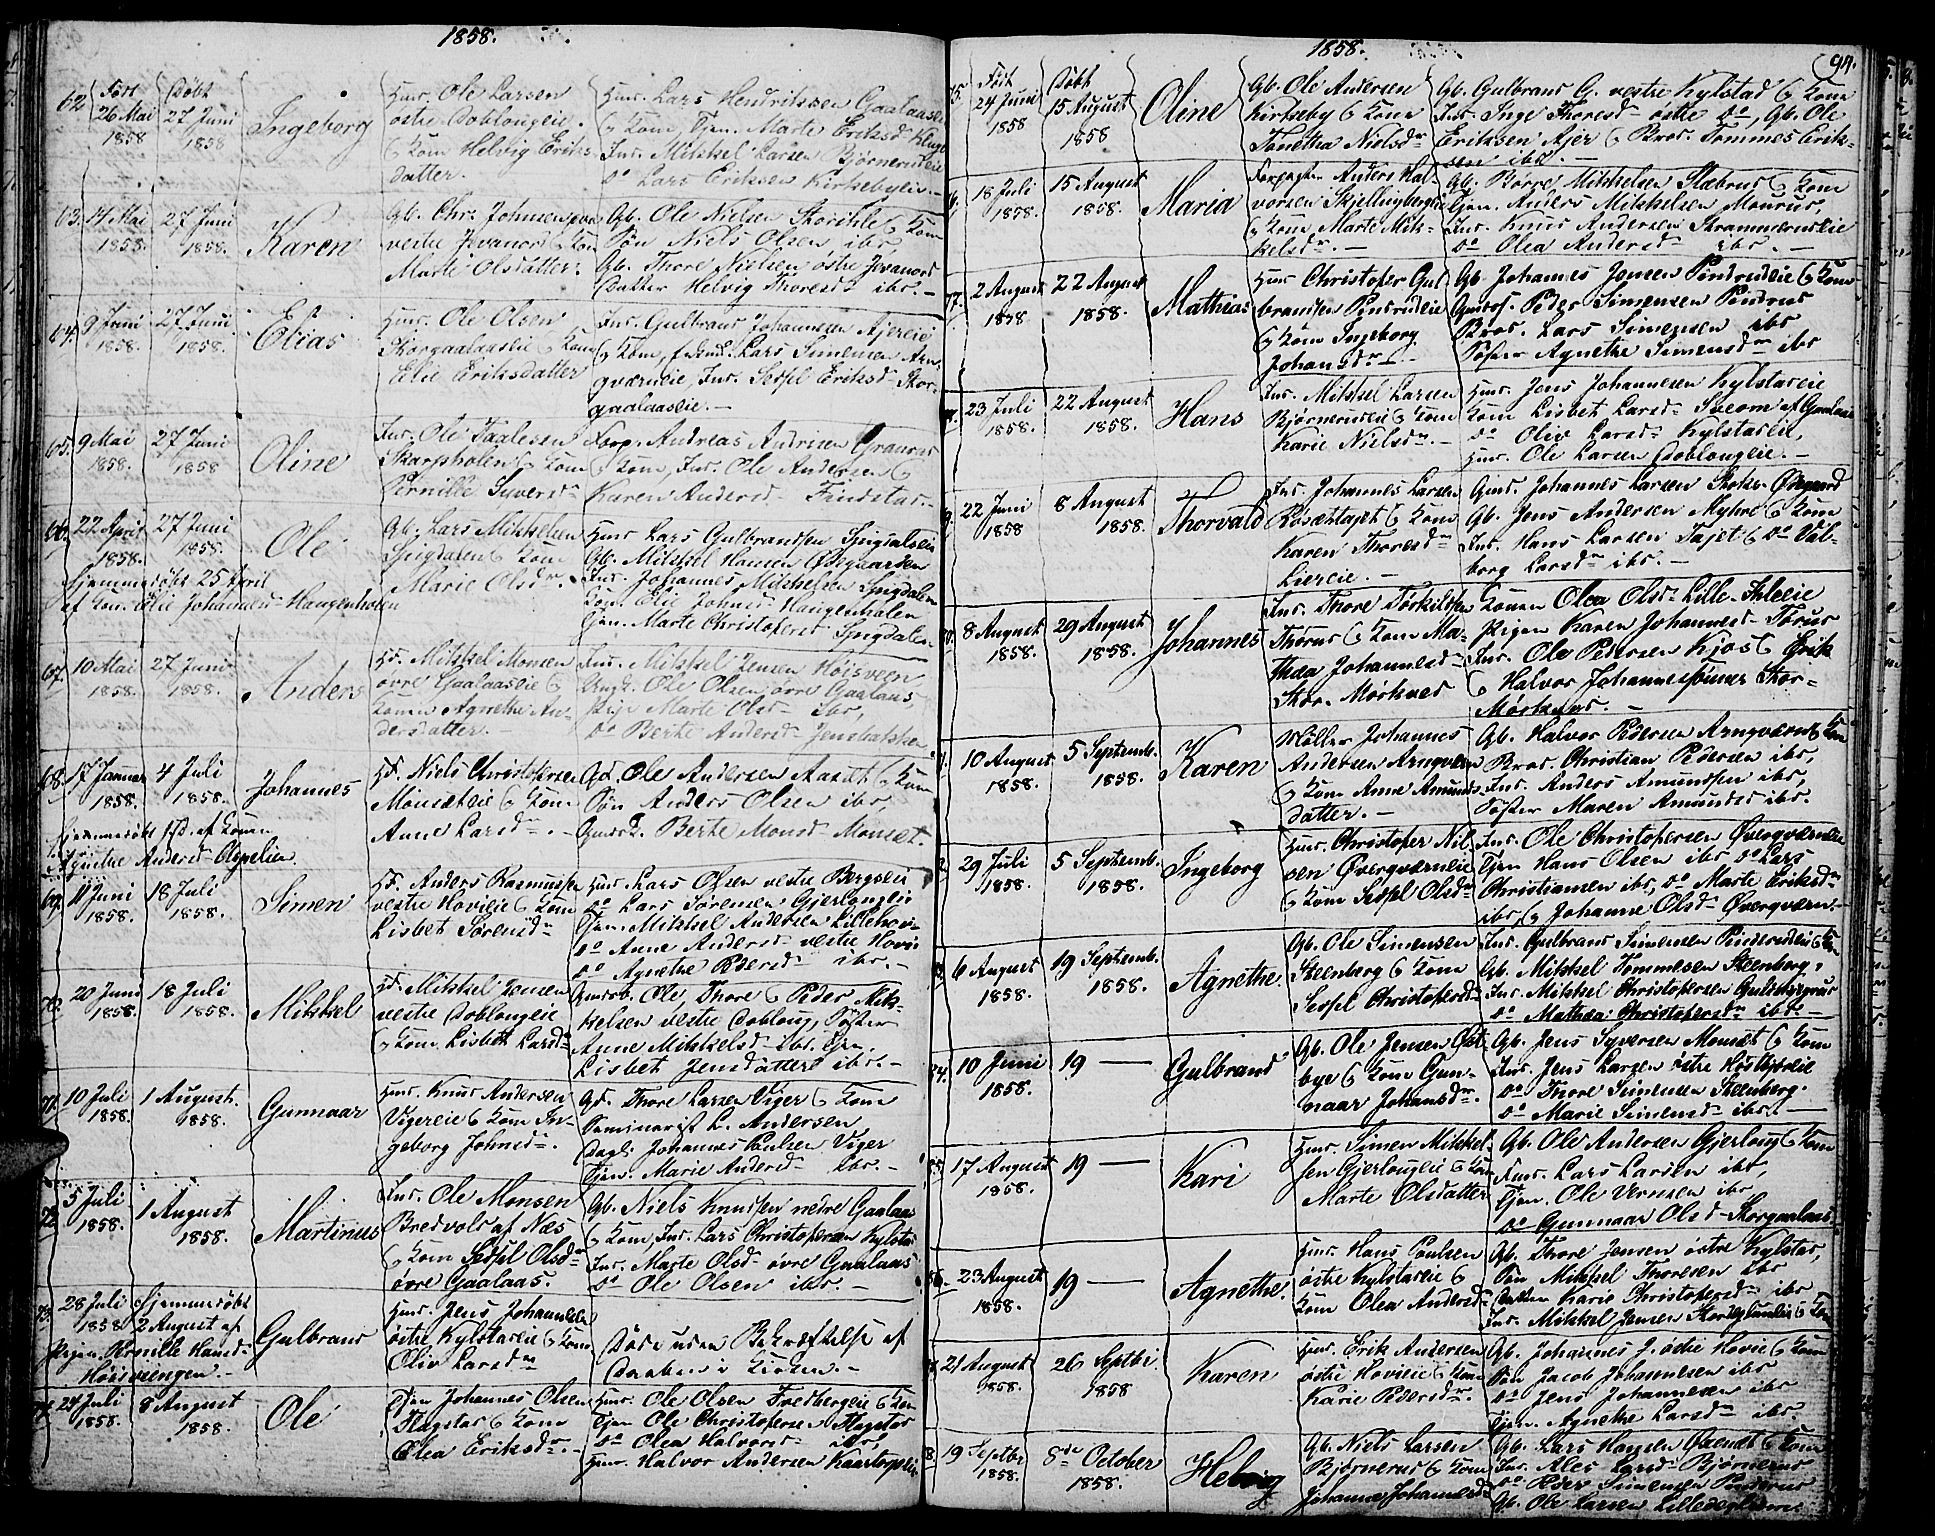 1858.
62 Født 26 Mai 1858
Døbt 27 Juni 1858
Ingeborg
Huus. Ole Larsen
østre Doblougeie.
Kone Helvig Eriks-
datter.
Huus. Lars Hendriksen Gaalaaseie
Kone, Tjen. Marte Eriksd
Ins. Mikkel Larsen Bjørnerudeie
Do Lars Eriksen Kirkebyeie.
63. 14 Mai 1858.
27 Juni 1858.
Karen
Gb. Chr. Johnsen
vestre Jevanord & Kone
Marte Olsdatter.
Gb. Ole Nielsen Storihle & Kone
Søn Niels Olsen ibr.
Gb. Thore Nielsen østre Jevanord
Datter Helvig Thoresd ibr.
64. 9 Juni 1858.
27 Juni 1858.
Elias
Huus. Ole Olsen
Storgaalaaseie & Kone
Elie Eriksdatter
Ins. Gulbrand Johannesen Ajereie
& Kone, Lars Simensen Arn-
gværneie, Ins. Sedsel Eriksd Stor-
gaalaaseie.
65. 9 Mai 1858.
27 Juni 1858
Oline
Ins. Ole Paalesen
Skarpholen & Kone
Pernille Syversd
Forp. Andreas Andersen Granrud
& Kone, Ins. Ole Andersen &
Karen Andersd Findstad.
66. 22 April 1858.
27 Juni 1858.
Ole
Gb. Lars Mikkelsen
Spigdalen & Kone
Marie Olsd.
Huus Lars Gulbrandsen Spigdalseie
Gb. Mikkel Hansen Østgaarden
Ins. Johannes Mikkelsen Spigdalen
Kone Elie Johnsd Haugenholen
Tjen. Marte Christophersd Spigdalen.
Hjemmedøbt 25 April
af Kone Elie Johannesd Haugenholen
67. 10 Mai 1858.
27 Juni 1858.
Anders
Hd. Mikkel Monsen
øvre Gaalaaseie &
Konen Agnethe An-
dersdatter.
Ins. Mikkel Jensen Høisveen
Ungk. Ole Olsen øvre Gaalaas,
Pige Marte Olsd ibr,
Do Berte Andersd Jensbakken
68. 17 Januar 1858.
4 Juli 1858.
Johannes
Hd. Niels Christophersen
Monsæteie & Kone
Anne Larsd.
Gb. Ole Andersen Aasæt & Kone
Søn Anders Olsen ibr,
Berte Monsd Monsæt.
Hjemmedøbt af Konen
Agnethe Andersd
69. 11 Juni 1858.
18 Juli 1858.
Simen
Hd. Anders Rasmussen
vestre Hovieie & Kone
Lisbet Sørensd
Huus. Lars Olsen vestre Bergseie
Do Lars Sørensen Gjerlougeie
Tjen. Mikkel Andersen Lillehov.
Do Anne Andersd vestre Hovie
Do Agnethe Pedersd ibr.
70. 20 Juni 1858.
18 Juli 1858.
Mikkel
Hd. Mikkel Jensen
vestre Doblougeie
& Kone Lisbet Larsd
Gaardb. Ole, Thore & Peder Mik-
kelsen vestre Doblong, Søster
Anne Mikkelsd ibr. Tjen.
Lisbet Jensdatter ibr.
71. 10 Juli 1858.
1 August. 1858.
Gunnaar
Huus. Knud Andersen
Vigereie & Kone In-
geborg Johnsd.
Gb. Thore Larsen Viger & Kone
Seminarist L. Andersen
Dagl. Johannes Paulsen Viger
Tjen. Marie Andersd ibr.
72. 5 Juli 1858.
1 August 1858.
Martinus
Ins. Ole Monsen
Bredvold af Næs
& Kone Sedsel Olsd
øvre Gaalaas.
Gb. Niels Knudsen nedre Gaalaas
& Kone, Ins. Lars Christophersen Kylstad
Ins. Marte Olsd øvre Gaalaas
Do Ole Olsen ibr.
73. 28 Juli 1858
Hjemmedøbt
2 August af
Pigen Pernille Hansd
Høisveengen.
Gulbrand
Huus. Jens Johannesen
østre Kylstadeie & Kone
Olive Larsd
Døde uden Bekræftelse af
Daaben i Kirken.
74. 24 Juli 1858.
8 August 1858.
Ole
Tjen Johannes Olsen
Flagstad & Kone
Olea Eriksd.
Huus. Ole Olsen Fredbergeie & Kone
Tjen Ole Christophersen Flagstad
Do Olea Halvorsd ibr,
Huus. Halvor Andersen Kaartorpeie
1858.
94.
75. Født 24 Juni 1858
Døbt 15 August 1858
Oline
Gb. Ole Andersen
Kirkeby & Kone
Dorethea Nielsd
Gb. Gulbrand G. vestre Kylstad & Kone
Ins. Inge Thoresd østre Do, Gb. Ole
Eriksen Ajer & Brod. Tommes Erik-
sen ibr.
18 Juli 1858.
15 August 1858.
Maria
Anders Hal-
vorsen Skjellingbergeie
& Kone Marte Mik-
kelsd.
Gb. Børre Mikkelsen Stabrud & Kone
Tjen. Anders Mikkelsen Monrud,
Ins. Knud Andersen Strammerudeie
Do Olea Andersd ibr.
77. 2 August 1858
22 August 1858.
Mathias
Huus Christopher Gul-
brandsen Pindrudeie
& Kone Ingeborg
Johansd.
Gb. Johannes Jensen Pindrudeie & Kone
Peder Simensen Pindrud
Brod. Lars Simensen ibr
Søster Agnethe Simensd ibr
23 Juli 1858.
22 August 1858.
Hans
Ins. Mikkel Larsen
Bjørnerudeie & Kone
Karie Nielsd.
Huus. Jens Johannesen Kylstadeie
Kone Lisbet Larsd Sveom af Gaalaas
Do Olive Larsd Kylstadeie,
Huus. Ole Larsen Doblougeie.
22 Juni 1858
8 August 1858.
Thorvald
Ins. Johannes Larsen
Røsættajet & Kone
Karen Thoresd
Liereie.
Johannes Larsen Ødegaard
Gb. Jens Andersen Myhre & Kone
Ins. Hans Larsen Tajet & Do Val-
borg Larsd ibr.
80. 8 August 1858.
29 August 1858.
Johannes
Ins. Thore Torkilsen
Thorud & Kone Ma-
thea Johannesd
Stor-Mørkved
Konen Olea Olsd Lille-Ihleeie
Pigen Karen Johannesd Torud
Ins. Ole Pedersen Kjos & Erik
& Halvor Johannessønner Stor-
Mørkved.
10 August 1858.
5 Septemb. 1858.
Karen
Møller Johannes
Andersen Arngværn
& Kone Anne Amunds-
datter.
Gb. Halvor Pedersen Arngværn & Kone
Brod. Christian Pedersen ibr,
Ins. Anders Amundsen ibr,
Søster Maren Amundsd ibr.
29 Juli 1858.
5 Septemb. 1858.
Ingeborg
Huus. Christopher Nil-
sen Øvergværneie
& Kone Sedsel Olsd
Ins. Ole Christophersen Øvergværneie
Tjen Hans Olsen ibr, Do Lars
Christiansen ibr, Do Marte Eriksd
ibr, & Johanne Olsd Øvergværn.
6 August 1858.
19 Septemb. 1858.
Agnethe.
Gb. Ole Simensen
Steenberg & Kone
Sedsel Christophersd
Ins. Gulbrand Simensen Pinderudeie & Kone
Gb. Mikkel Tommesen Steenberg,
Ins. Mikkel Christophersen
Do Mathea Christophersd ibr.
84. 10 Juni 1858.
19 —
Gulbrand
Gb. Ole Jensen Øst-
bye & Kone Gun-
naar Johansd.
Gb. Jens Syversen Monsæt & Kone
Ins. Jens Larsen østre
Do Thore Simensen Steenberg.
Do Marie Simensd ibr.
85. 17 August 1858.
19 —
Kari
Huus. Simen Mikkel-
sen Gjerlougeie & Kone
Marte Olsdatter
Gb. Ole Andersen Gjerloug & Kone
Ins. Lars Larsen ibr,
Tjen. Ole Vernsen ibr,
Do Gunnaar Olsd Storgaalaas
86. 23 August 1858.
19 —
Agnethe.
Huus. Hans Poulsen
østre Kylstadeie &
Kone Olea Andersd
Gb. Thore Jensen østre Kylstad,
Søn Mikkel Thoresen ibr
Datter Karie Christophersd ibr
Ins. Mikkel Jensen & Kone
21 August 1858.
26 Septbr 1858
Karen
Huus. Erik Andersen
østre Hovieie & Kone
Karie Pedersd.
Gb. Johannes J. østre Hovie & Kone
Søn Jacob Johannesen ibr
Do Jens Johannesen ibr
Tjen. Agnethe Larsd ibr.
19 Septbr 1858.
8de October 1858.
Helvig
Gb. Niels Larsen
Bjørnerud & Kone
Johanne Johannesd
Gb. Lars Hansen & Kone
Ins. Ales Larsd Bjørnerud
Do Peder Simensen Pinderud
Gb. Ole Larsen